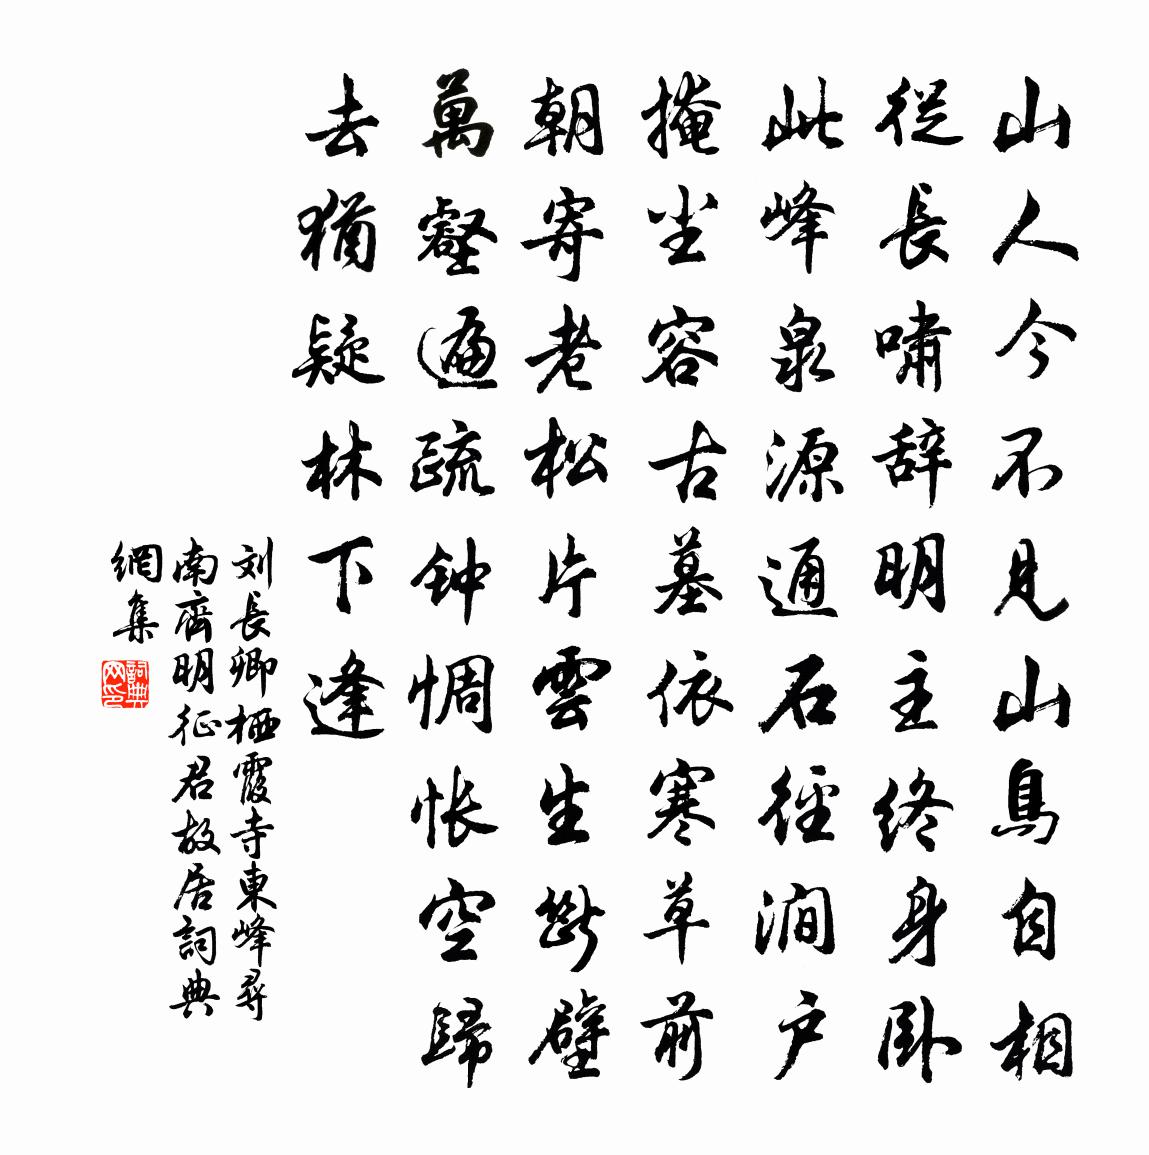 山人今不見山鳥自相
從長嘯辞明主終身卧
此峰泉源通石徑澗户
掩尘容古墓依寒草前
朝寄老松片雲生斷壁
萬壑遍疏钟惆怅空歸
去猶疑林下逢
刘長卿栖霞寺東峰尋
南齊明征君故居詞典
網集